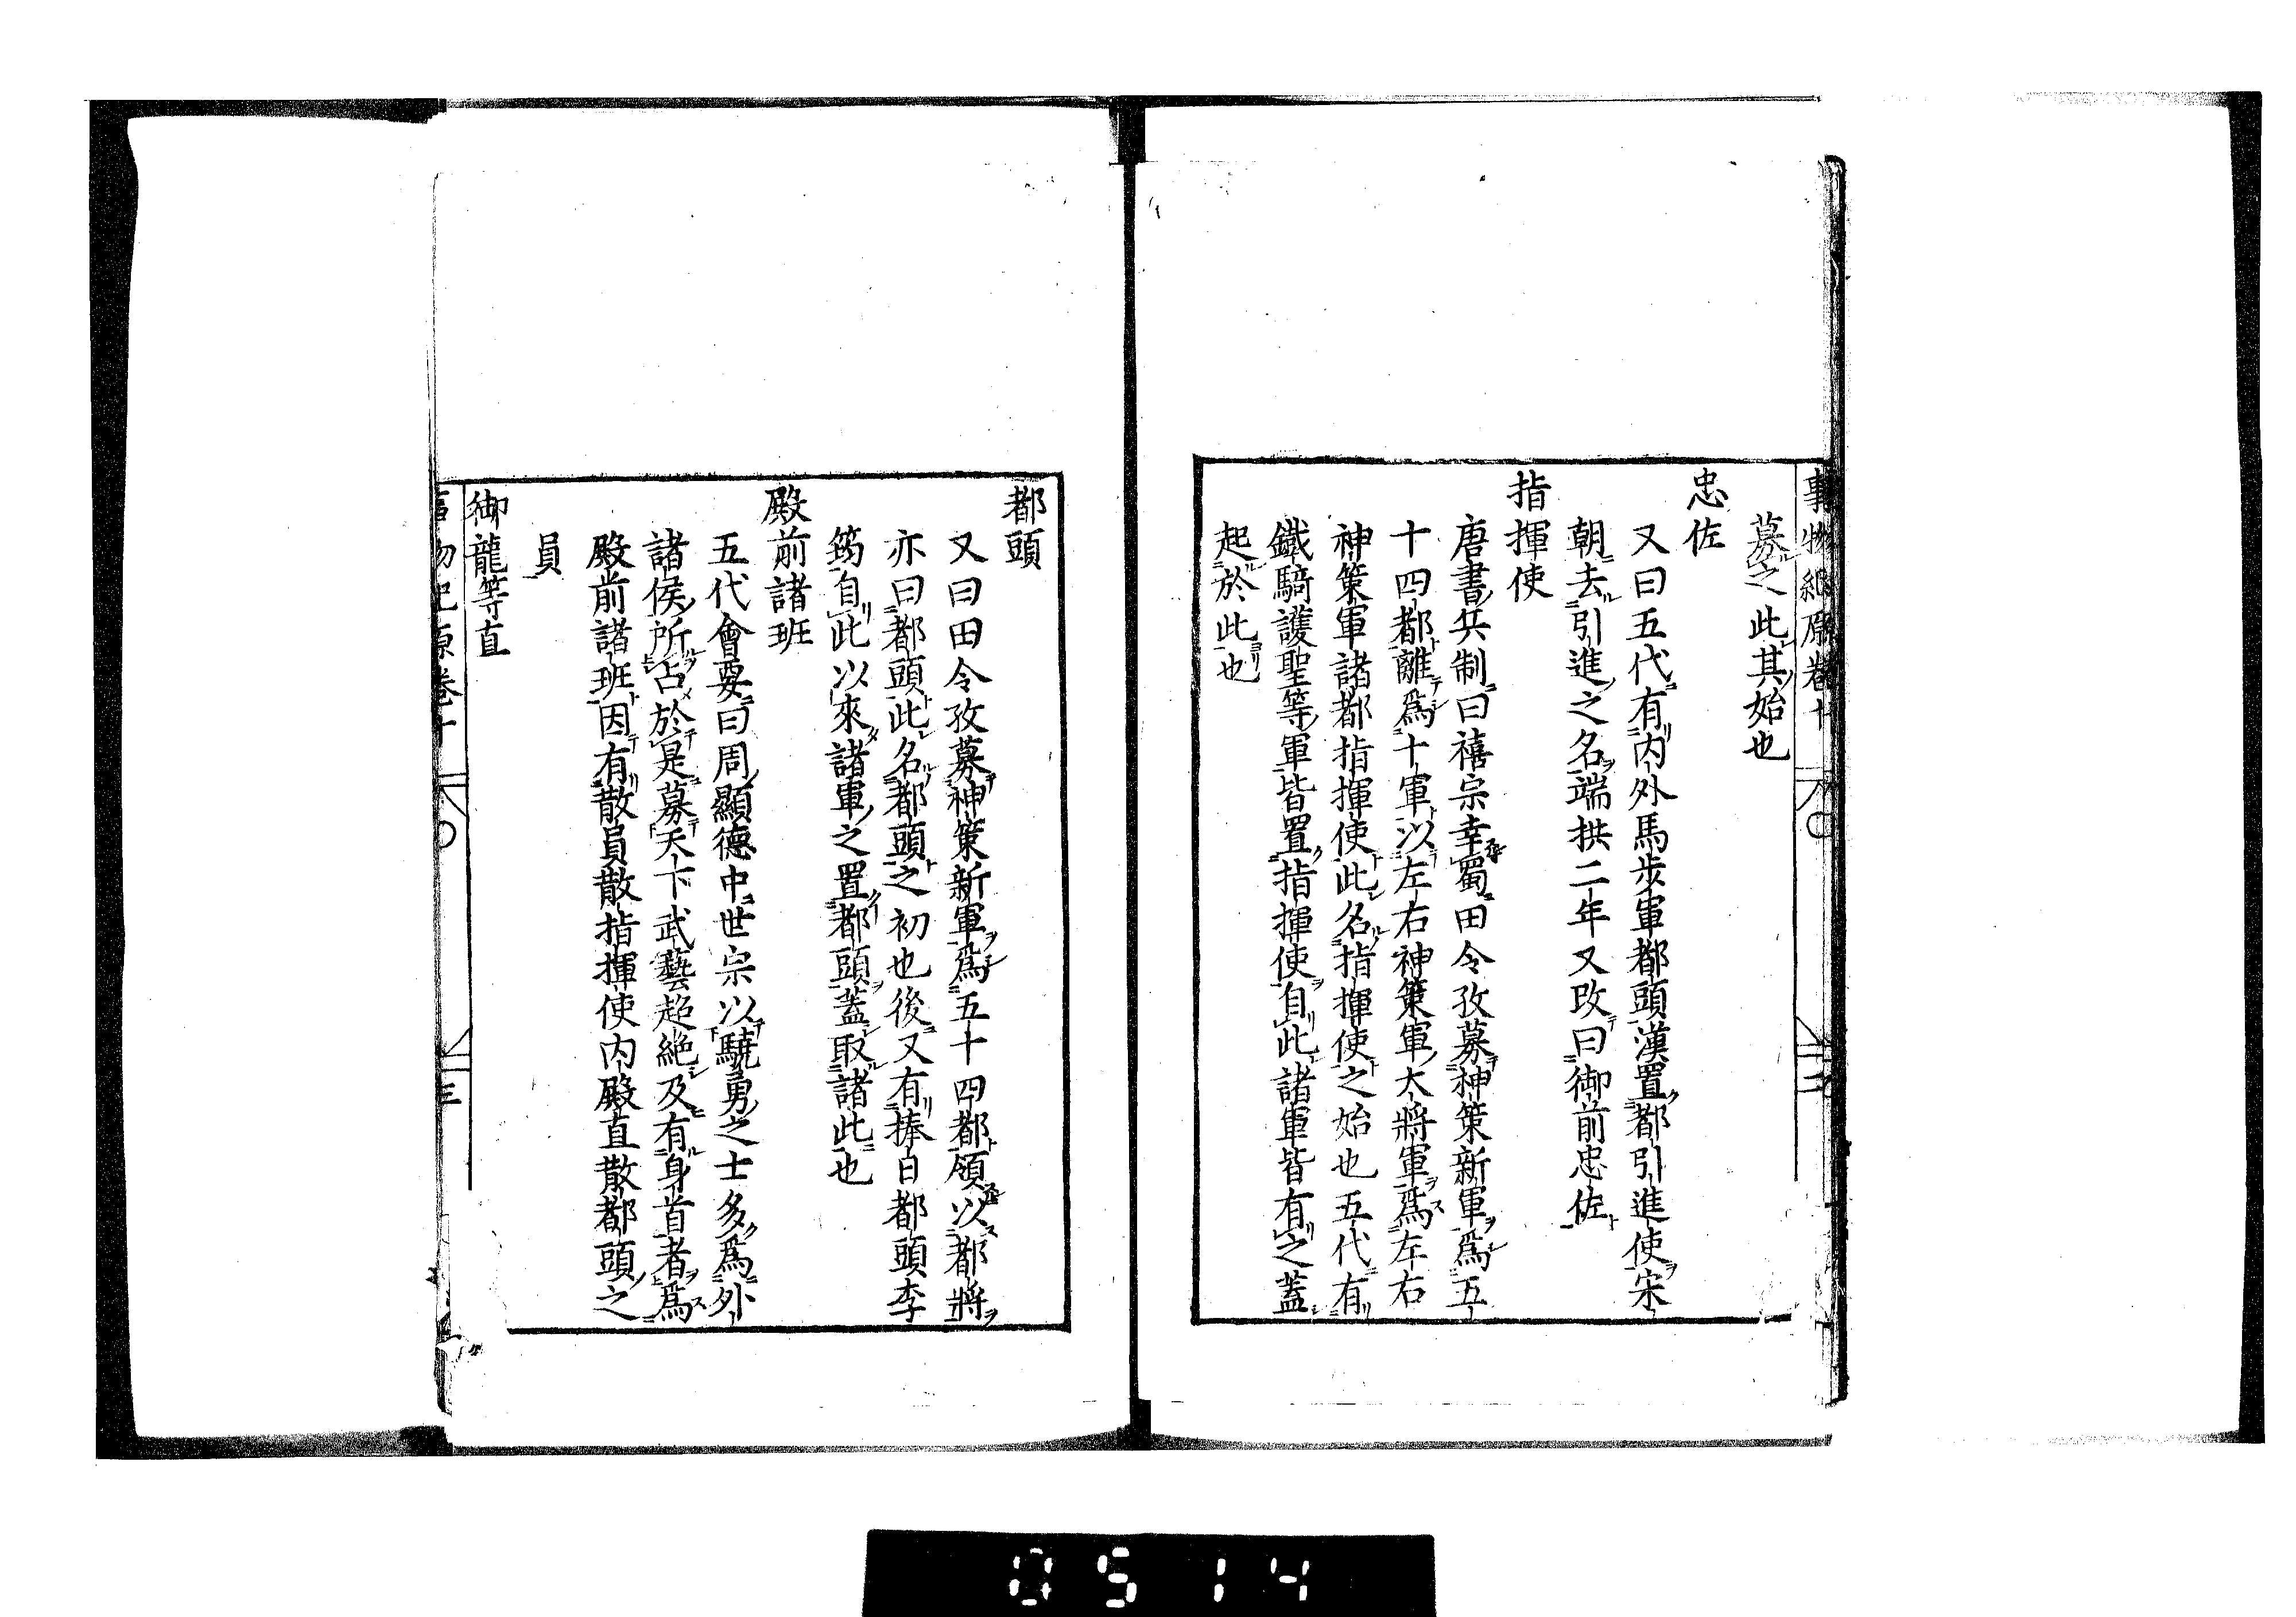 事物紀原卷十
募之此其始也
忠佐
又曰五代有内外馬步軍都頭漢置都引進使宋
朝去引進之名端拱二年又改曰御前忠佐
指揮使
唐書兵制曰禧宗幸蜀田令孜募神策新軍爲五
十四都離爲十軍以左右神策軍大將軍爲左右
神策軍諸都指揮使此名指揮使之始也五代有
鐵騎護聖等軍皆置指揮使自此諸軍皆有之蓋
起於此也
都頭
又曰田令孜募神策新軍爲五十四都領以都將
亦曰都頭此名都頭之初也後又有捧日都頭李
筠自此以來諸軍之置都頭蓋取諸此也
殿前諸班
五代會要曰周顯德中世宗以驍勇之士多爲外
諸侯所占於是募天下武藝超絶及有身首者爲
殿前諸班因有散員散指揮使内殿直散都頭之
員
御龍等直
事物紀原卷十
三
0514